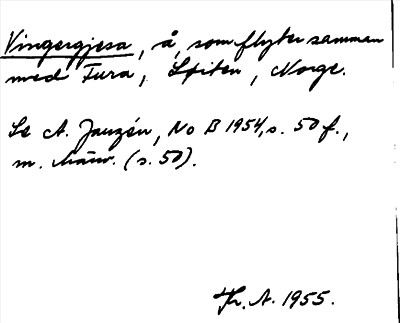 Vingergjesa, å, som flyter samman
med Fura, Löiten, Norge.
Se A. Janzén, No B 1954, s. 50 f.,
m. hänv. (s. 50).
Th. A. 1955.